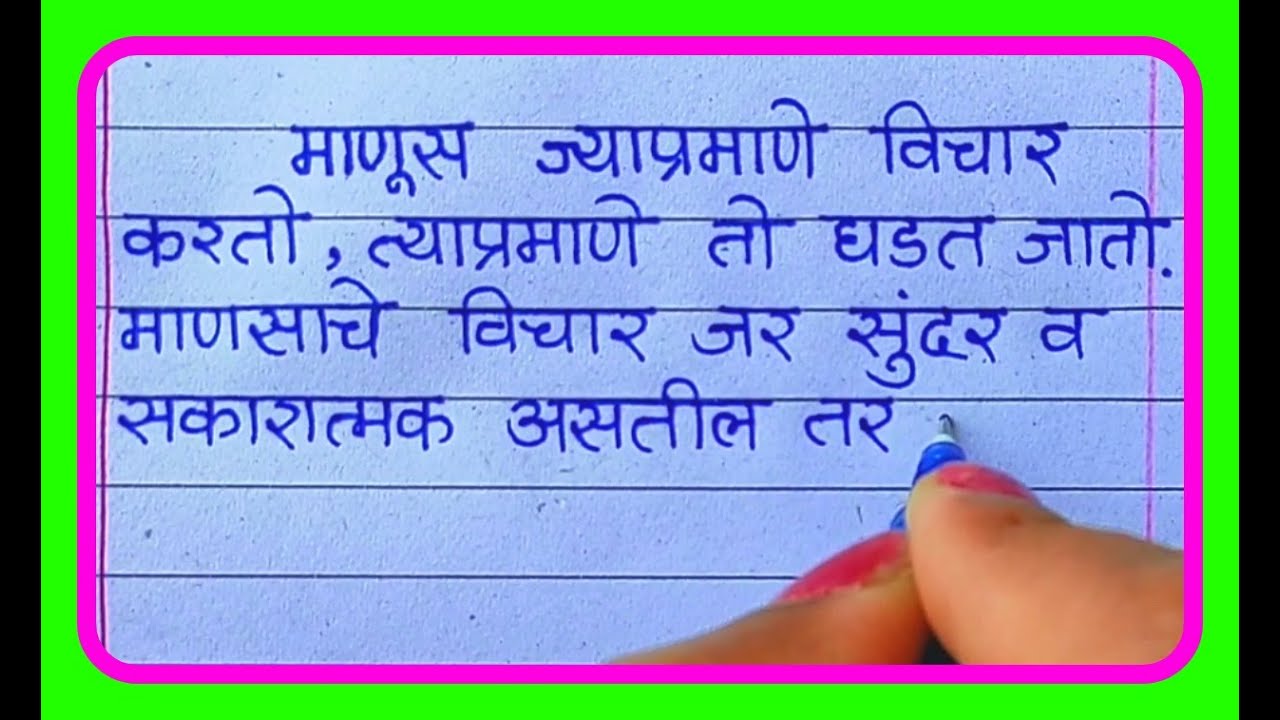 माणूस ज्याप्रमाणे विचार
करतो, त्याप्रमाणे तो घडत जातो.
माणसाचे विचार जर सुंदर व
सकारात्मक असतील तर